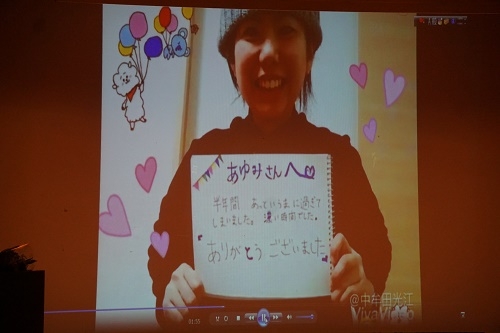 あゆみさんへ
半年間 あっというまに過ぎて
しまいました。濃い時間でした。
ありがとうございました
@中牟田光江
VivaVideo